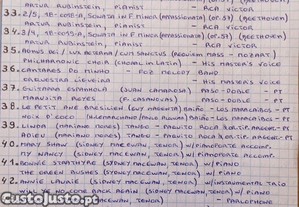 ARTUR RUBINSTEIN, PIANIST - RCA VICTOR
33. 2/5, 18-0093A, SONATA IN F MINOR (APPASSIONATA) (OP.57) (BEETHOVEN)
ARTUR RUBINSTEIN, PIANIST - RCA VICTOR
34. 3/4, SONATA IN F MINOR (APPASSIONATA) (OP.57) (BEETHOVEN)
ARTUR RUBINSTEIN, PIANIST - RCA VICTOR
35. AGNUS DEI / LUX AETERNA / CUM SANCTUS (REQUIEM MASS - MOZART)
PHILHARMONIC CHOIR (CHORAL IN LATIN) - HIS MASTER'S VOICE
36. CANTARES DO MINHO - FOR BAND
ORQUESTRA LIGEIRA - HIS MASTER'S VOICE
37. GUITARRA ESPANHOLA (JUAN CAMAROSA) PASO-DOBLE - PT
MANOLITA REYES (F. CASANOVAS) PASO-DOBLE - PT
38. LE PETIT ÂNE BRÉSILIEN (GUY) BAIÃO - LOS PARAGUAIOS - PT
NOIX D'COCO BAIÃO - LOS PARAGUAIOS - PT
39. LINDA (MARIANO MORES) TANGO - PAQUITO ROCA
ADIEU (MARIANO MORES) TANGO - PAQUITO ROCA
40. MARY SHAW (SIDNEY MACEWAN, TENOR) W/ PIANOFORTE ACCOMP.
MY NANCY (SIDNEY MACEWAN, TENOR) W/ PIANOFORTE ACCOMP.
41. BONNIE STRATHYRE (SYDNEY MACEWAN, TENOR) W/ PIANO
THE GREEN BUSHES (SYDNEY MACEWAN, TENOR) W/ PIANO
42. ANNIE LAURIE (SIDNEY MACEWAN, TENOR) W/ INSTRUMENTAL TRIO
WILL YE NO COME BACK AGAIN (SIDNEY MACEWAN, TENOR) W/ PIANO
MACEWAN, TENOR) - PARLOPHONE
CustoJusto.pt